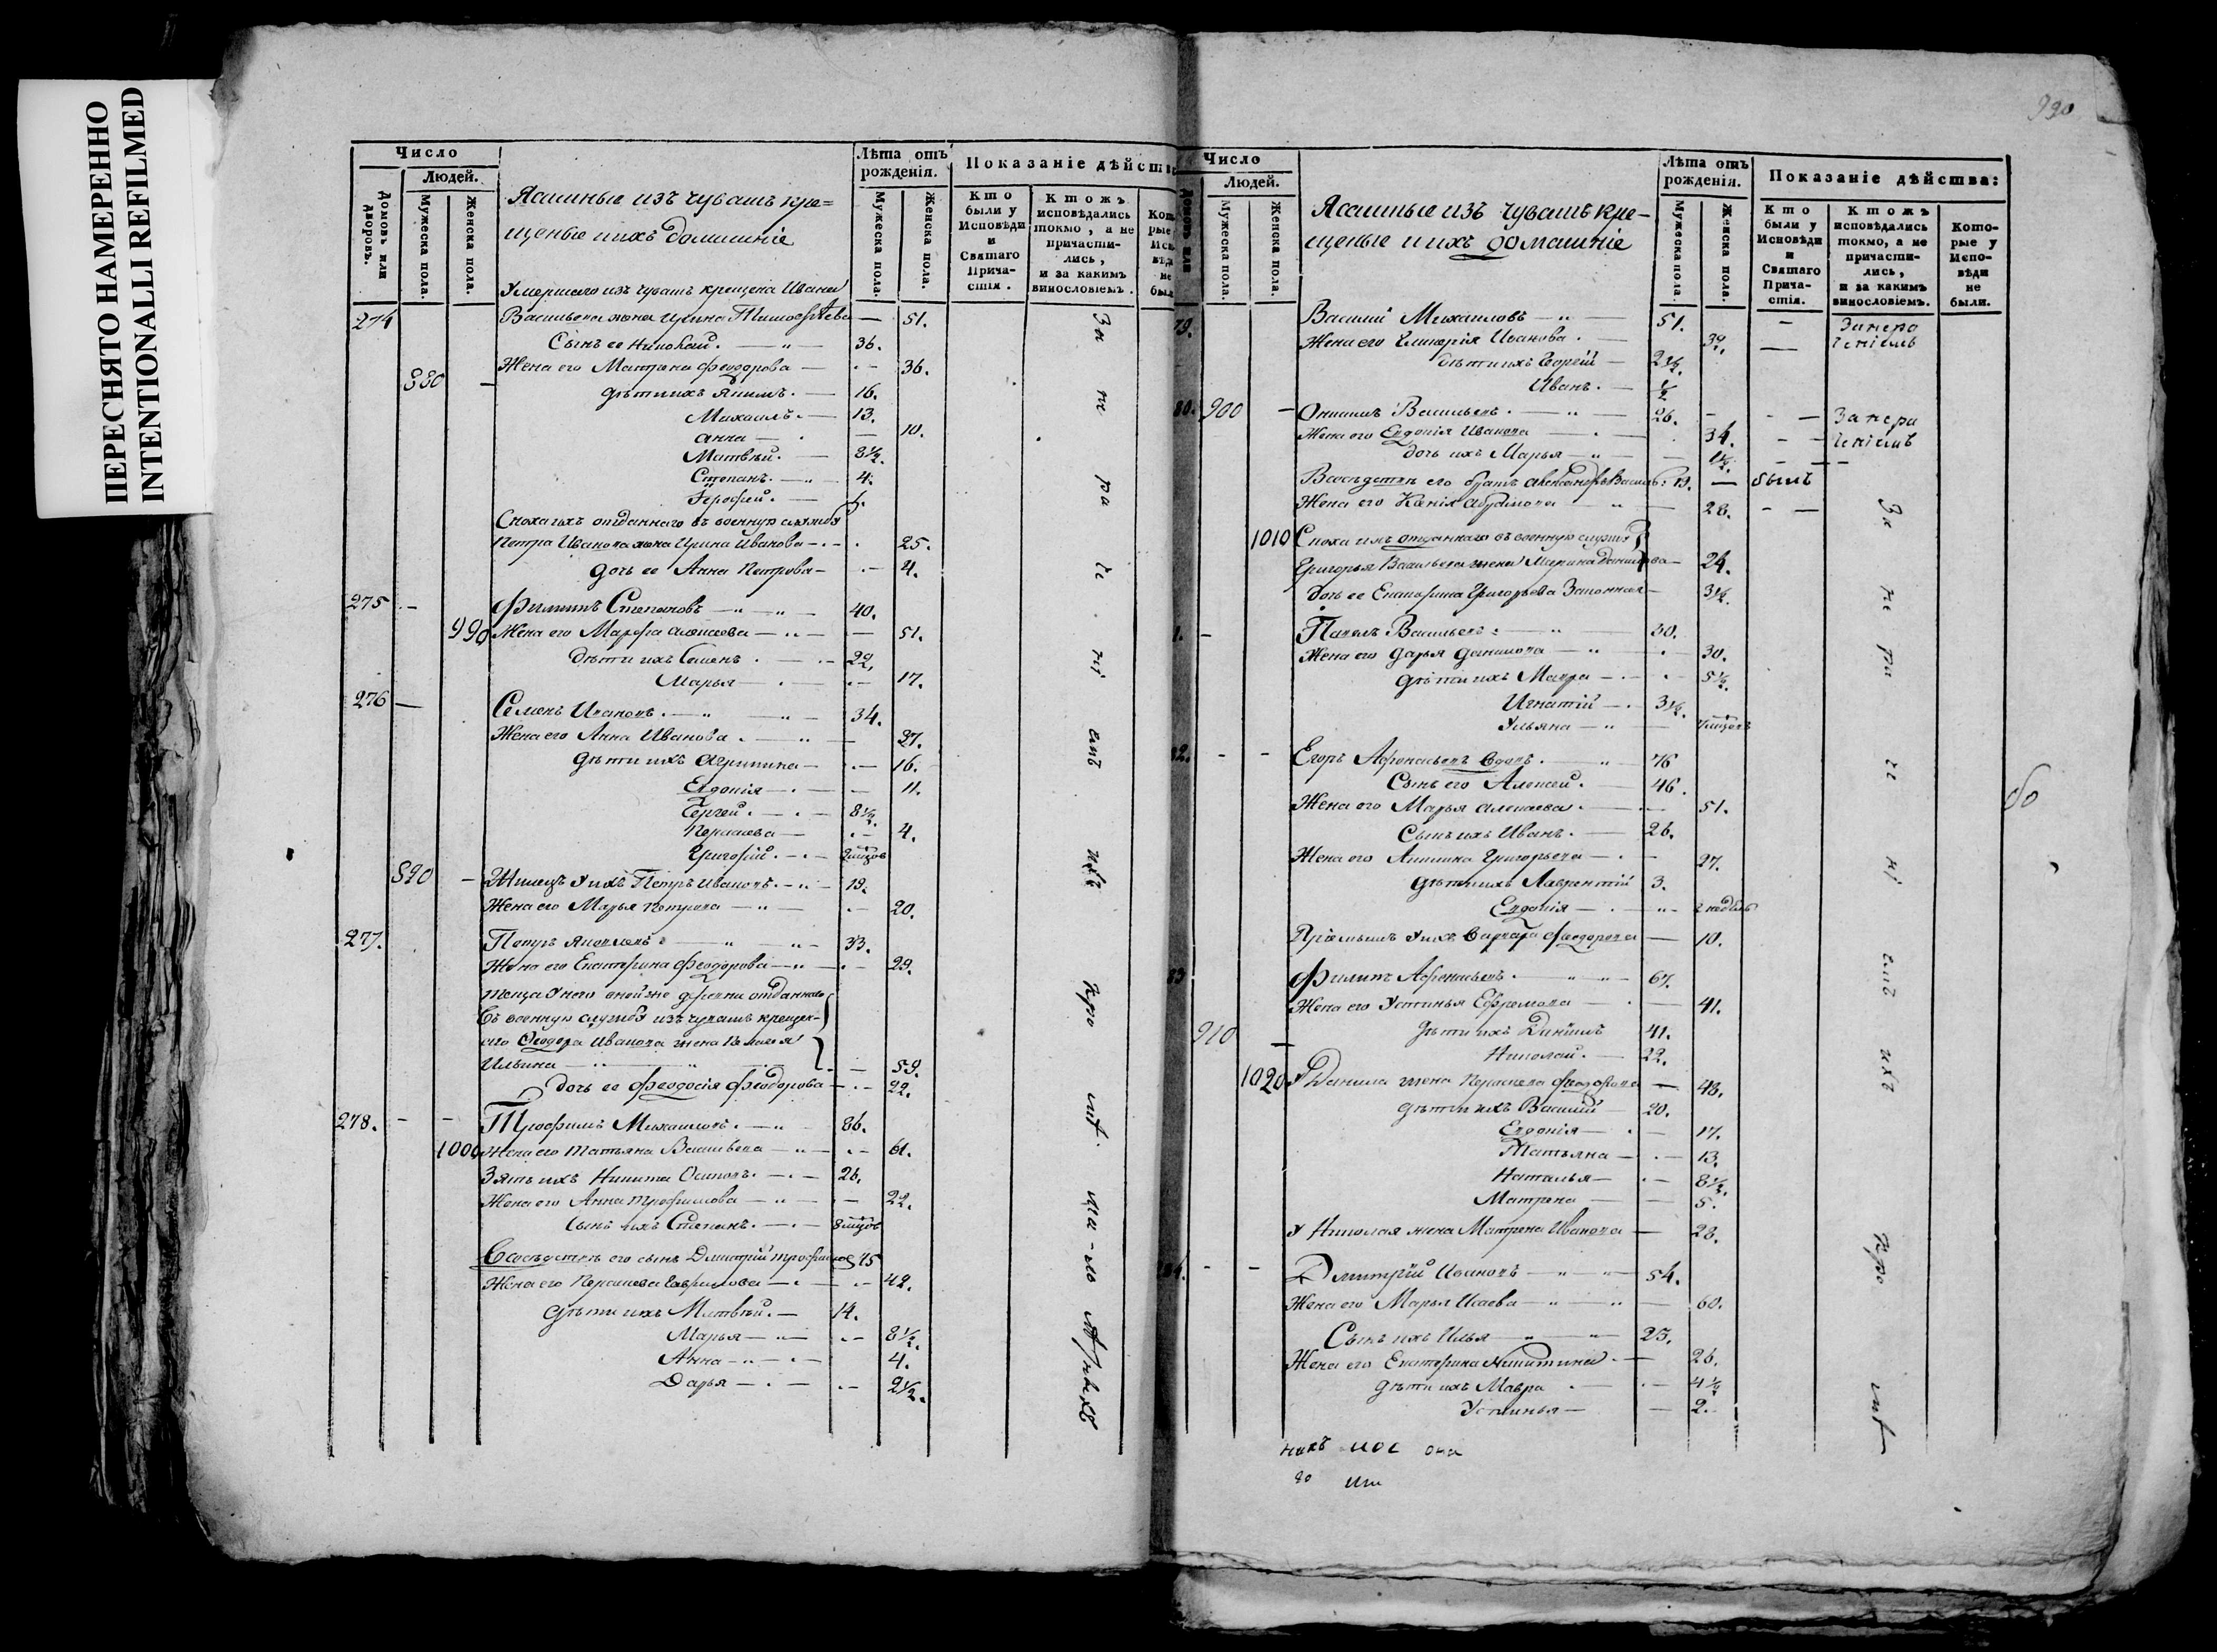 ПЕРЕСНЯТО НАМЕРЕННО
INTENTIONALLI REFILMED
Число
Людей.
Домовъ или дворовъ.
Мужеска пола.
Женска пола.
Ясашные изъ чувашъ кре=
щеные и ихъ домашнiе
Лѣта отъ рожденiя.
Мужеска пола.
Женска пола.
Показанiе дѣйств
Кто были у Исповѣди и Святаго Прича-стiя.
Ктожъ исповѣдались токмо, а не причасти-лись, и за какимъ винословiемъ.
Умершаго изъ чувашъ крещена Ивана
274 Васильева жена Ирина Тимофѣева — 51.
Сынъ ее Николай. — 36.
Жена его Матрена Феодорова — 36.
880 — дѣти ихъ Якимъ. — 16.
Михаилъ. — 13.
Анна — 10.
Матвѣй. — 8½.
Степанъ. — 4.
Ерофей. —
Сноха ихъ отданнаго въ военную службу
Петра Иванова жена Ирина Иванова — 25.
дочь ее Анна Петрова — 4.
275 — Филипъ Степановъ — 40.
990 Жена его Марфа Алексеева — 51.
дѣти ихъ Семенъ. — 22.
Марья — 17.
276 — Семенъ Ивановъ. — 34.
Жена его Анна Иванова — 37.
дѣти ихъ Агрипина — 16.
Евдокiя — 11.
Сергей. — 8½.
Параскева — 4.
Григорiй. —
890 — Живецъ у ихъ Петръ Ивановъ. — 19.
Жена его Марья Петрова — 20.
277. Петръ Яковлевъ — 33.
Жена его Екатерина Феодорова — 29.
теща у него оной же деревни отданнаго
въ военную службу изъ чувашъ крещен-
аго Феодора Иванова жена
Ильина — 59.
дочь ее Феодосiя Феодорова — 22.
278. — Трофимъ Михаиловъ. — 86.
1000 Жена его Татьяна Васильева — 61.
Зять ихъ Никита Осиповъ. — 26.
Жена его Анна Трофимова — 22.
сынъ ихъ Степанъ. —
В соседстве его сынъ Дмитрiй Трофимов 45
Жена его Параскева Гаврилова — 42.
дѣти ихъ Матвѣй. — 14.
Марья — 8½.
Анна — 4.
Дарья — 2½.
990
Число
Людей.
Мужеска пола.
Женска пола.
Ясашные изъ чувашъ кре-
щеные и ихъ домашнiе
Лѣта отъ рожденiя.
Мужеска пола.
Женска пола.
Показанiе дѣйства:
Кто были у Исповѣди и Святаго Прича-стiя.
Ктожъ исповѣдались токмо, а не причасти-лись, и за какимъ винословiемъ.
Кото-рые у Испо-вѣди не были.
79. Василiй Михаиловъ — 51. — Занера
Жена его Гликерiя Иванова. — 39. — ченiемъ
дѣти ихъ Георгiй — 2½.
Иванъ. — ½
80. 900 — Онисимъ Васильевъ. — 26. — Занера
Жена его Евдокiя Иванова — 34. — ченiемъ
дочь ихъ Марья — 1½.
В соседстве его братъ Александръ Василь: 19. — былъ
Жена его Ксенiя Абрамова — 28. —
1010 Сноха ихъ отданнаго въ военную службу
Григорья Васильева жена Марина Данилова — 24.
дочь ее Екатерина Григорьева Законная — 3½.
1. — Павелъ Васильевъ — 30.
Жена его Дарья Данилова — 30.
дѣти ихъ Мавра — 5½.
Игнатiй — 3½.
Ульяна —
82. — Егоръ Афонасьевъ вдовъ. — 76
Сынъ его Алексей. — 46.
Жена его Марья Алексеева. — 51.
Сынъ ихъ Иванъ. — 26.
Жена его Акилина Григорьева — 27.
дѣти ихъ Лаврентiй 3.
Евдокiя — 2 недѣль
Прiемышъ у ихъ Варвара Феодорова — 10.
83 Филипъ Афонасьевъ. — 67.
Жена его Устинья Ефремова — 41.
910 — дѣти ихъ Данiилъ 41.
Николай. — 22.
1020 У Данила жена Параскева Феодорова — 43.
дѣти ихъ Василiй — 20.
Евдокiя — 17.
Татьяна — 13.
Наталья — 8½.
Матрена — 5.
У Николая жена Матрена Иванова — 28.
284. — Дмитрiй Ивановъ — 54.
Жена его Марья Исаева — 60.
Сынъ ихъ Илья — 23.
Жена его Екатерина Никитина. — 26.
дѣти ихъ Мавра — 4½
Устинья — 2.